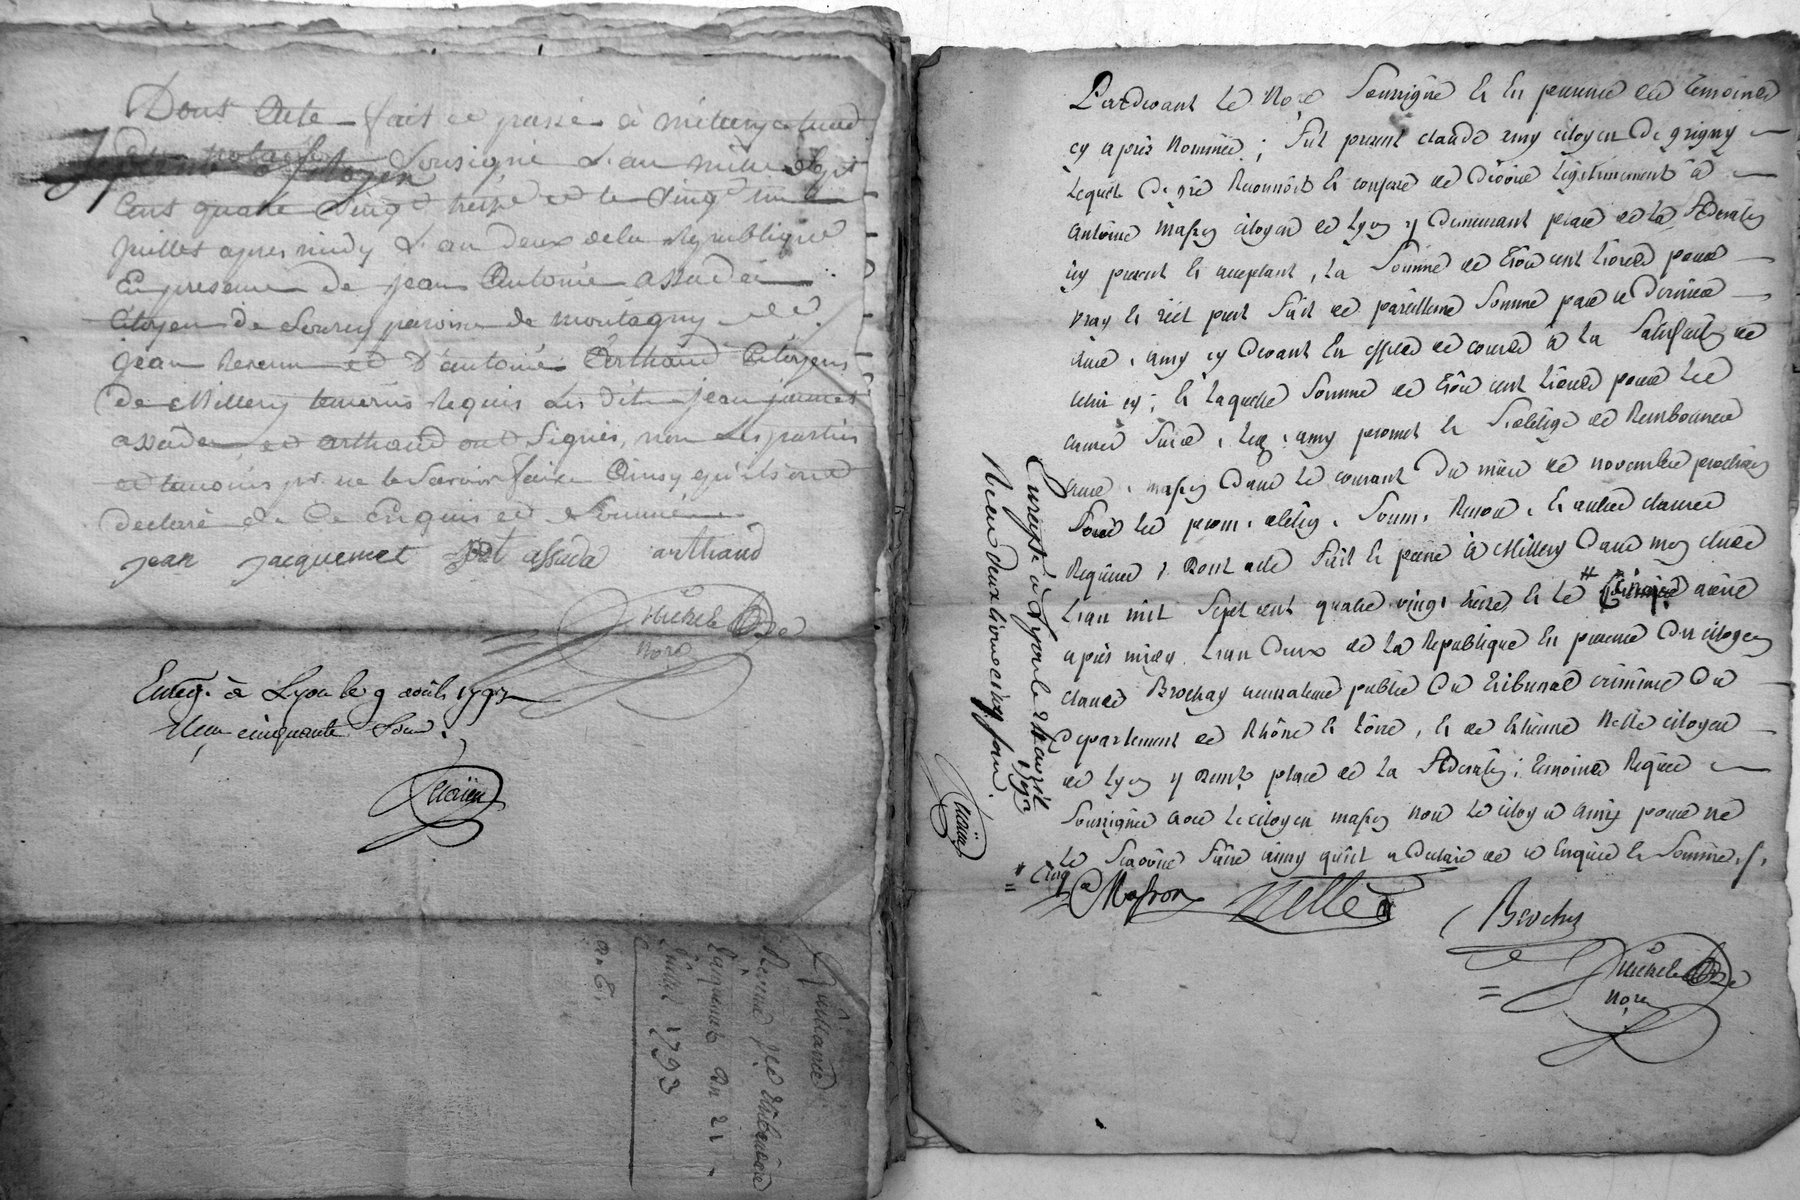 Dont Acte fait et passé à
Sousigné L'an mille Sept
Cent quatre vingt treize et le vingt
juillet apres midy L'an deux de la Republique
En presence de jean Antoine assada
Citoyen de Sourcy paroisse de montagny et de
jean et d'antoine Arthaud Citoyens
de Millery temoins Requis Les dits jean
assada et arthaud ont Signés, non Les parties
et temoins pr. ne le Savoir faire Ainsy qu'ils ont
declaré de Ce Enquis et Sommés
jean jacquemet assada arthaud
Michel
Nore
Enreg. à Lyon le 9 août 1793
Reçu cinquante Sous.
Quittance
an 21
juillet 1793
Pardevant Le Nore Soussigné Et En presence des temoins
cy après Nommés ; Fut present claude amy citoyen De grigny
Lequel De gré Reconnoit Et confesse de Devoir Legitimement à
antoine masson citoyen de Lyon y Demeurant place de La Federation
icy present Et acceptant, La Somme de trois cent Livres pour
vray Et réel prest Fait de pareille Somme par ce Dernier
aud. amy cy devant En especes de cours à La Satisfaction de
celui cy ; Et Laquelle Somme de trois cent Livres pour Les
causes Susd. Led. amy promet Et S'oblige de Rembourser
aud. masson Dans Le courant Du mois de novembre prochain
Sous Les prom. oblig. Soum. Renon. Et autres clauses
Requises ; Dont acte Fait Et passé à Millery Dans mon Etude
L'an mil Sept cent quatre vingt treize Et Le avril
après midy L'an Deux de La Republique En presence Du citoyen
claude Brochay accusateur public Du tribunal criminel Du
Departement de Rhône Et Loire, Et de Etienne Nelle citoyen
de Lyon y demt place de La Federation ; temoins Requis
Soussignés avec Le citoyen masson non Le citoyen amy pour ne
Le Scavoir Faire ainsy qu'il a Declaré de ce Enquis Et Sommé. /.
Cinq
Masson Nelle
Brochay
Michel
Nore
Enregistré à Lyon le avril 1793
Reçu deux livres cinq sous.